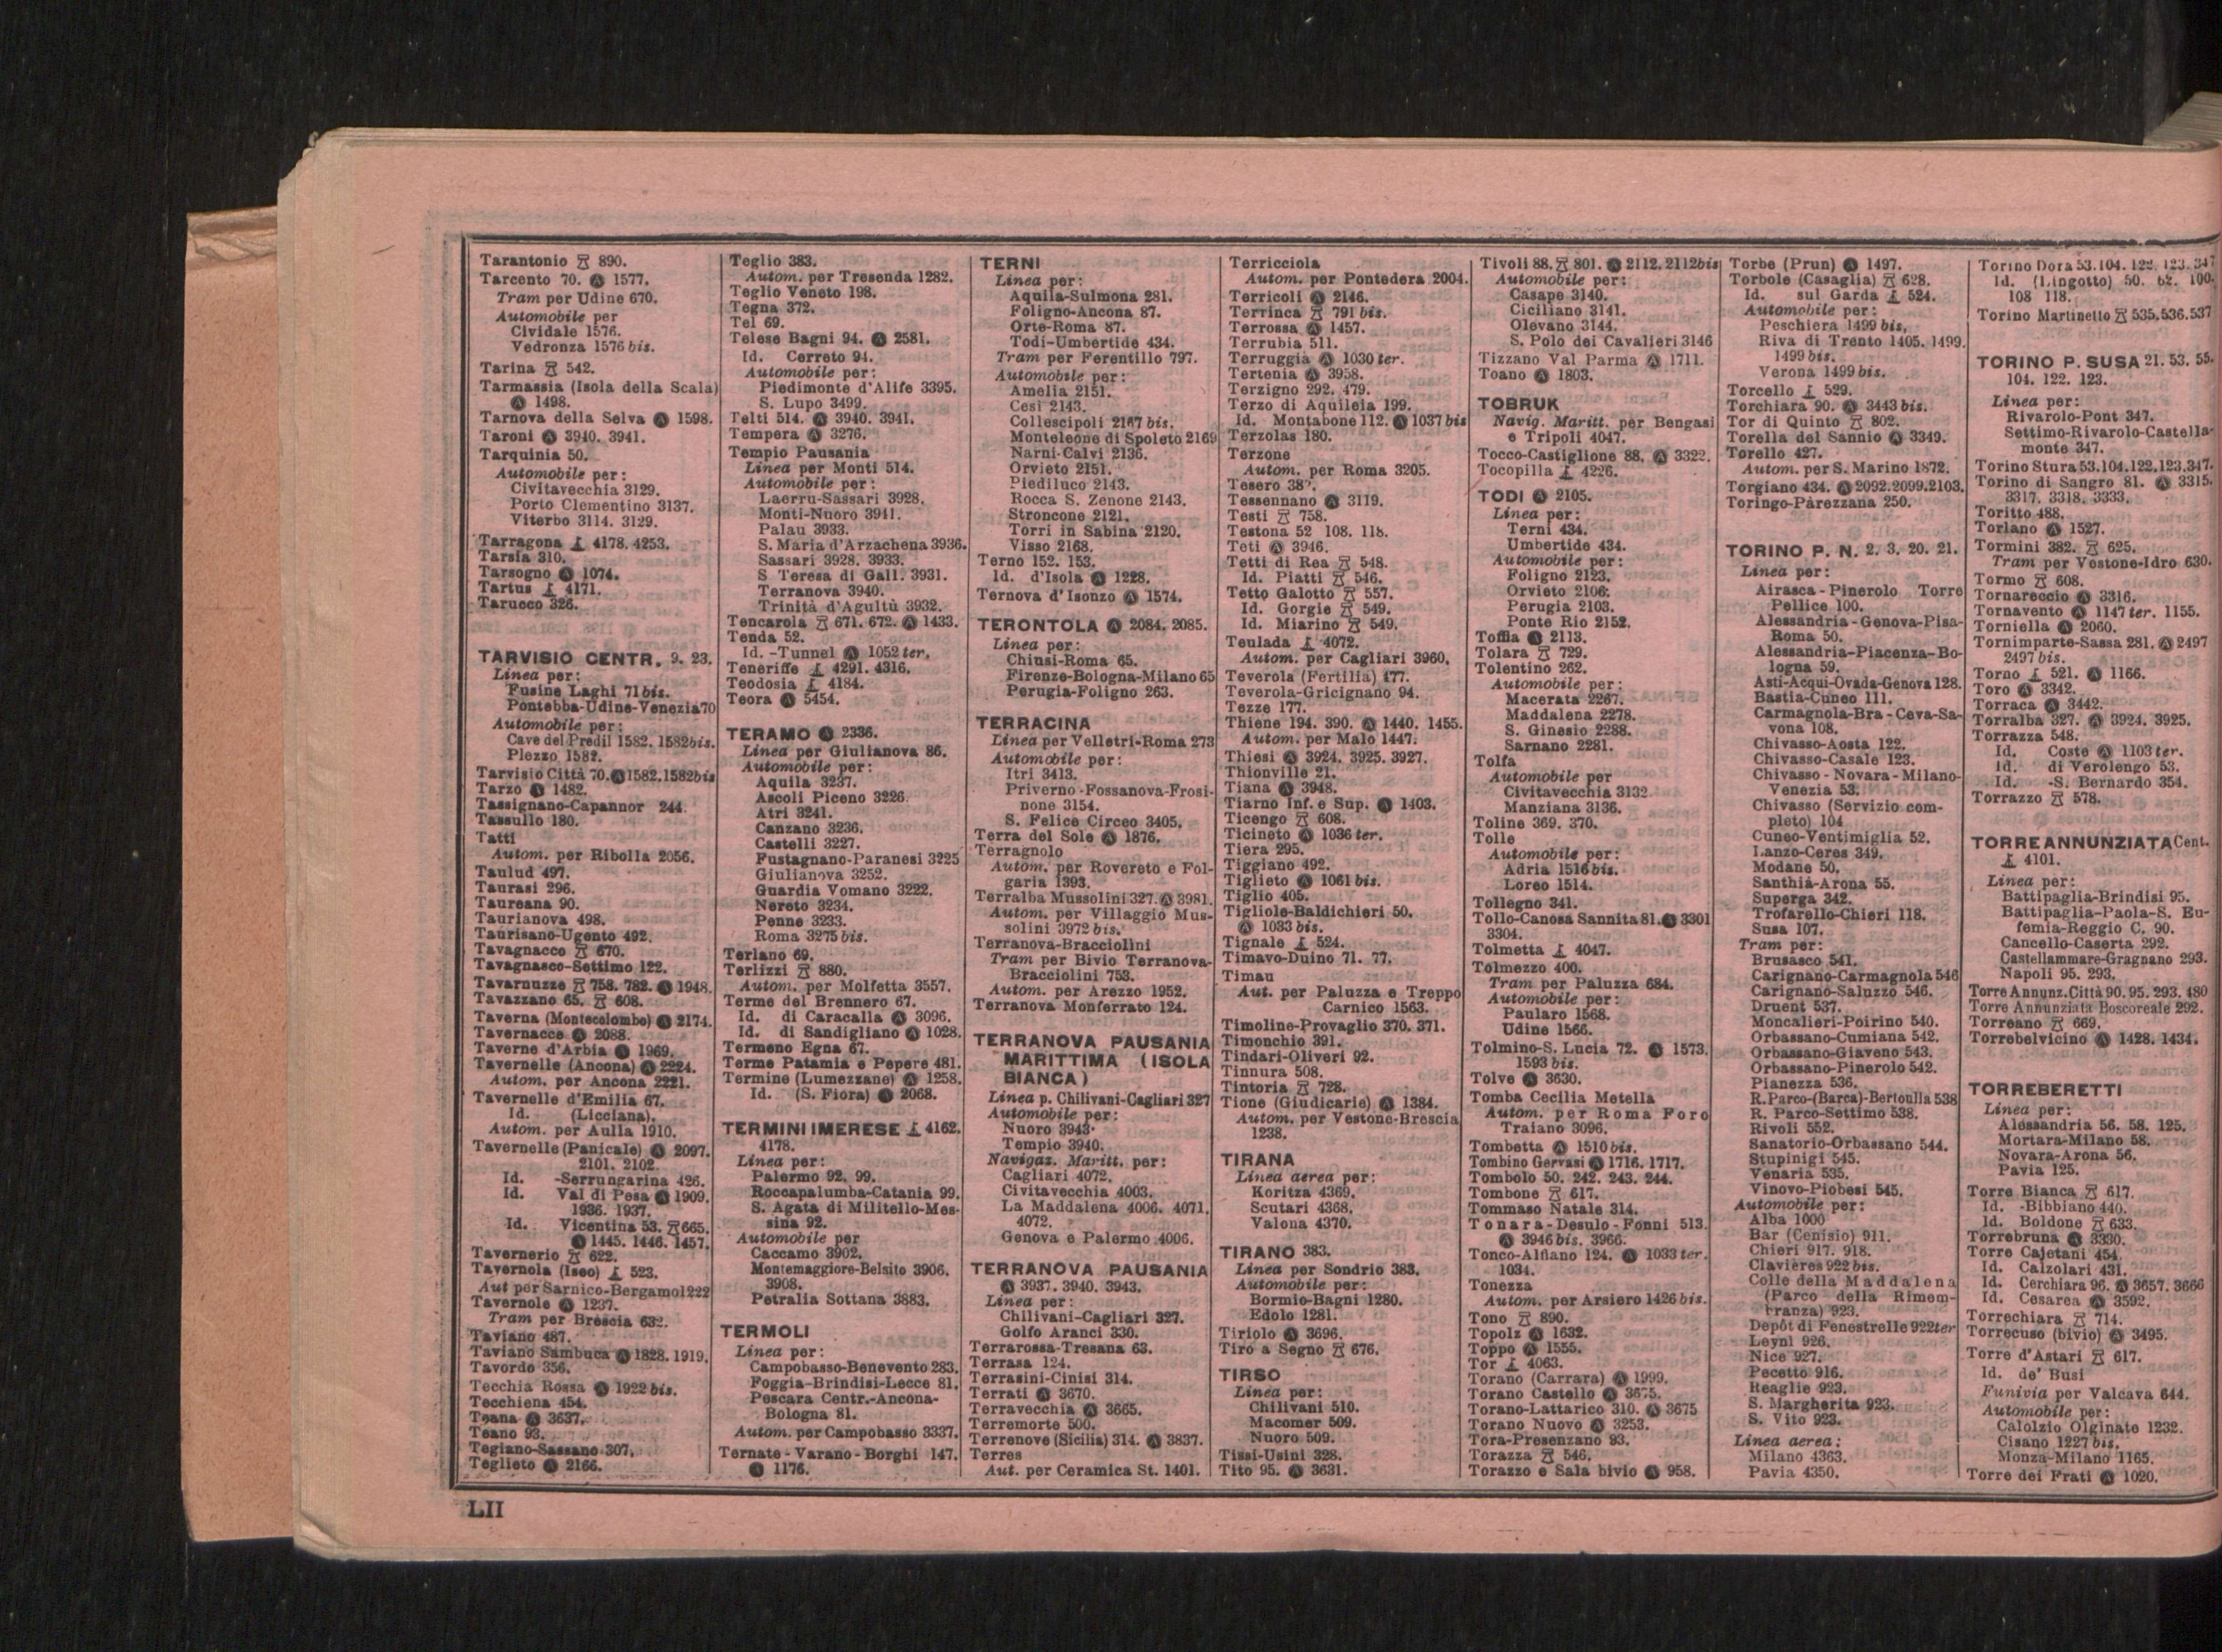 Tarantonio 890.
Tarcento 70. Ⓐ 1577.
Tram per Udine 670.
Automobile per
Cividale 1576.
Vedronza 1576 bis.
Tarina 542.
Tarmassia (Isola della Scala)
Ⓐ 1498.
Tarnova della Selva Ⓐ 1598.
Taroni Ⓐ 3940. 3941.
Tarquinia 50.
Automobile per:
Civitavecchia 3129.
Porto Clementino 3137.
Viterbo 3114. 3129.
Tarragona 4178. 4253.
Tarsia 310.
Tarsogno Ⓐ 1074.
Tartus 4171.
Tarucco 326.
TARVISIO CENTR. 9. 23.
Linea per:
Fusine Laghi 71 bis.
Pontebba-Udine-Venezia 70
Automobile per:
Cave del Predil 1582. 1582 bis.
Plezzo 1582.
Tarvisio Città 70. Ⓐ 1582. 1582 bis
Tarzo Ⓐ 1482.
Tassignano-Capannor 244.
Tassullo 180.
Tatti
Autom. per Ribolla 2056.
Taulud 497.
Taurasi 296.
Taureana 90.
Taurianova 498.
Taurisano-Ugento 492.
Tavagnacco 670.
Tavagnasco-Settimo 122.
Tavarnuzze 758. 782. Ⓐ 1948.
Tavazzano 65. 608.
Taverna (Montecolombo) Ⓐ 2174.
Tavernacce Ⓐ 2088.
Taverne d'Arbia Ⓐ 1969.
Tavernelle (Ancona) Ⓐ 2224.
Autom. per Ancona 2221.
Tavernelle d'Emilia 67.
Id. (Licciana).
Autom. per Aulla 1910.
Tavernelle (Panicale) Ⓐ 2097.
2101. 2102.
Id. -Serrungarina 426.
Id. Val di Pesa Ⓐ 1909.
1936. 1937.
Id. Vicentina 53. 665.
Ⓐ 1445. 1446. 1457.
Tavernerio 622.
Tavernola (Iseo) 523.
Aut per Sarnico-Bergamo 1222
Tavernole Ⓐ 1237.
Tram per Brescia 632.
Taviano 487.
Taviano Sambuca Ⓐ 1828. 1919.
Tavordo 356.
Tecchia Rossa Ⓐ 1922 bis.
Tecchiena 454.
Teana Ⓐ 3637.
Teano 93.
Tegiano-Sassano 307.
Teglieto Ⓐ 2166.
Teglio 383.
Autom. per Tresenda 1282.
Teglio Veneto 198.
Tegna 372.
Tel 69.
Telese Bagni 94. Ⓐ 2581.
Id. Cerreto 94.
Automobile per:
Piedimonte d'Alife 3395.
S. Lupo 3499.
Telti 514. Ⓐ 3940. 3941.
Tempera Ⓐ 3276.
Tempio Pausania
Linea per Monti 514.
Automobile per:
Laerru-Sassari 3928.
Monti-Nuoro 3941.
Palau 3933.
S. Maria d'Arzachena 3936.
Sassari 3928. 3933.
S Teresa di Gall. 3931.
Terranova 3940.
Trinità d'Agultù 3932.
Tencarola 671. 672. Ⓐ 1433.
Tenda 52.
Id. -Tunnel Ⓐ 1052 ter.
Teneriffe 4291. 4316.
Teodosia 4184.
Teora Ⓐ 5454.
TERAMO Ⓐ 2336.
Linea per Giulianova 86.
Automobile per:
Aquila 3237.
Ascoli Piceno 3226.
Atri 3241.
Canzano 3236.
Castelli 3227.
Fustagnano-Paranesi 3225
Giulianova 3252.
Guardia Vomano 3222.
Nereto 3234.
Penne 3233.
Roma 3275 bis.
Terlano 69.
Terlizzi 880.
Autom. per Molfetta 3557.
Terme del Brennero 67.
Id. di Caracalla Ⓐ 3096.
Id. di Sandigliano Ⓐ 1028.
Termeno Egna 67.
Terme Patamia e Pepere 481.
Termine (Lumezzane) Ⓐ 1258.
Id. (S. Fiora) Ⓐ 2068.
TERMINI IMERESE 4162.
4178.
Linea per:
Palermo 92. 99.
Roccapalumba-Catania 99.
S. Agata di Militello-Mes-
sina 92.
Automobile per
Caccamo 3902.
Montemaggiore-Belsito 3906.
3908.
Petralia Sottana 3883.
TERMOLI
Linea per:
Campobasso-Benevento 283.
Foggia-Brindisi-Lecce 81.
Pescara Centr.-Ancona-
Bologna 81.
Autom. per Campobasso 3337.
Ternate - Varano - Borghi 147.
Ⓐ 1176.
TERNI
Linea per:
Aquila-Sulmona 281.
Foligno-Ancona 87.
Orte-Roma 87.
Todi-Umbertide 434.
Tram per Ferentillo 797.
Automobile per:
Amelia 2151.
Cesi 2143.
Collescipoli 2167 bis.
Monteleone di Spoleto 2169
Narni-Calvi 2136.
Orvieto 2151.
Piediluco 2143.
Rocca S. Zenone 2143.
Stroncone 2121.
Torri in Sabina 2120.
Visso 2168.
Terno 152. 153.
Id. d'Isola Ⓐ 1228.
Ternova d'Isonzo Ⓐ 1574.
TERONTOLA Ⓐ 2084. 2085.
Linea per:
Chiusi-Roma 65.
Firenze-Bologna-Milano 65
Perugia-Foligno 263.
TERRACINA
Linea per Velletri-Roma 273
Automobile per:
Itri 3413.
Priverno-Fossanova-Frosi-
none 3154.
S. Felice Circeo 3405.
Terra del Sole Ⓐ 1876.
Terragnolo
Autom. per Rovereto e Fol-
garia 1393.
Terralba Mussolini 327. Ⓐ 3981.
Autom. per Villaggio Mus-
solini 3972 bis.
Terranova-Bracciolini
Tram per Bivio Terranova-
Bracciolini 753.
Autom. per Arezzo 1952.
Terranova Monferrato 124.
TERRANOVA PAUSANIA
MARITTIMA (ISOLA
BIANCA)
Linea p. Chilivani-Cagliari 327
Automobile per:
Nuoro 3943.
Tempio 3940.
Navigaz. Maritt. per:
Cagliari 4072.
Civitavecchia 4003.
La Maddalena 4006. 4071.
4072.
Genova e Palermo 4006.
TERRANOVA PAUSANIA
Ⓐ 3937. 3940. 3943.
Linea per:
Chilivani-Cagliari 327.
Golfo Aranci 330.
Terrarossa-Tresana 63.
Terrasa 124.
Terrasini-Cinisi 314.
Terrati Ⓐ 3670.
Terravecchia Ⓐ 3665.
Terremorte 500.
Terrenove (Sicilia) 314. Ⓐ 3837.
Terres
Aut. per Ceramica St. 1401.
Terricciola
Autom. per Pontedera 2004.
Terricoli Ⓐ 2146.
Terrinca 791 bis.
Terrossa Ⓐ 1457.
Terrubia 511.
Terruggia Ⓐ 1030 ter.
Tertenia Ⓐ 3958.
Terzigno 292. 479.
Terzo di Aquileia 199.
Id. Montabone 112. Ⓐ 1037 bis
Terzolas 180.
Terzone
Autom. per Roma 3205.
Tesero
Tessennano Ⓐ 3119.
Testi 758.
Testona 52 108. 118.
Teti Ⓐ 3946.
Tetti di Rea 548.
Id. Piatti 546.
Tetto Galotto 557.
Id. Gorgie 549.
Id. Miarino 549.
Teulada 4072.
Autom. per Cagliari 3960.
Teverola (Fertilia) 477.
Teverola-Gricignano 94.
Tezze 177.
Thiene 194. 390. Ⓐ 1440. 1455.
Autom. per Malo 1447.
Thiesi Ⓐ 3924. 3925. 3927.
Thionville 21.
Tiana Ⓐ 3948.
Tiarno Inf. e Sup. Ⓐ 1403.
Ticengo 608.
Ticineto Ⓐ 1036 ter.
Tiera 295.
Tiggiano 492.
Tiglieto Ⓐ 1061 bis.
Tiglio 405.
Tigliole-Baldichieri 50.
Ⓐ 1033 bis.
Tignale 524.
Timavo-Duino 71. 77.
Timau
Aut. per Paluzza e Treppo
Carnico 1563.
Timoline-Provaglio 370. 371.
Timonchio 391.
Tindari-Oliveri 92.
Tinnura 508.
Tintoria 728.
Tione (Giudicarie) Ⓐ 1384.
Autom. per Vestone-Brescia
1238.
TIRANA
Linea aerea per:
Koritza 4369.
Scutari 4368.
Valona 4370.
TIRANO 383.
Linea per Sondrio 383.
Automobile per:
Bormio-Bagni 1280.
Edolo 1281.
Tiriolo Ⓐ 3696.
Tiro a Segno 676.
TIRSO
Linea per:
Chilivani 510.
Macomer 509.
Nuoro 509.
Tissi-Usini 328.
Tito 95. Ⓐ 3631.
Tivoli 88. 801. Ⓐ 2112. 2112 bis
Automobile per:
Casape 3140.
Ciciliano 3141.
Olevano 3144.
S. Polo dei Cavalieri 3146
Tizzano Val Parma Ⓐ 1711.
Toano Ⓐ 1803.
TOBRUK
Navig. Maritt. per Bengasi
e Tripoli 4047.
Tocco-Castiglione 88. Ⓐ 3322.
Tocopilla 4226.
TODI Ⓐ 2105.
Linea per:
Terni 434.
Umbertide 434.
Automobile per:
Foligno 2123.
Orvieto 2106.
Perugia 2103.
Ponte Rio 2152.
Toffia Ⓐ 2113.
Tolara 729.
Tolentino 262.
Automobile per:
Macerata 2267.
Maddalena 2278.
S. Ginesio 2288.
Sarnano 2281.
Tolfa
Automobile per
Civitavecchia 3132
Manziana 3136.
Toline 369. 370.
Tolle
Automobile per:
Adria 1516 bis.
Loreo 1514.
Tollegno 341.
Tollo-Canosa Sannita 81. Ⓐ 3301
3304.
Tolmetta 4047.
Tolmezzo 400.
Tram per Paluzza 684.
Automobile per:
Paularo 1568.
Udine 1566.
Tolmino-S. Lucia 72. Ⓐ 1573.
1593 bis.
Tolve Ⓐ 3630.
Tomba Cecilia Metella
Autom. per Roma Foro
Traiano 3096.
Tombetta Ⓐ 1510 bis.
Tombino Gervasi Ⓐ 1716. 1717.
Tombolo 50. 242. 243. 244.
Tombone 617.
Tommaso Natale 314.
Tonara-Desulo-Fonni 513.
Ⓐ 3946 bis. 3966.
Tonco-Alfiano 124. Ⓐ 1033 ter.
1034.
Tonezza
Autom. per Arsiero 1426 bis.
Tono 890.
Topolz Ⓐ 1632.
Toppo Ⓐ 1555.
Tor 4063.
Torano (Carrara) Ⓐ 1999.
Torano Castello Ⓐ 3675.
Torano-Lattarico 310. Ⓐ 3675
Torano Nuovo Ⓐ 3253.
Tora-Presenzano 93.
Torazza 546.
Torazzo e Sala bivio Ⓐ 958.
Torbe (Prun) Ⓐ 1497.
Torbole (Casaglia) 628.
Id. sul Garda 524.
Automobile per:
Peschiera 1499 bis,
Riva di Trento 1405. 1499.
1499 bis.
Verona 1499 bis.
Torcello 529.
Torchiara 90. Ⓐ 3443 bis.
Tor di Quinto 802.
Torella del Sannio Ⓐ 3349.
Torello 427.
Autom. per S. Marino 1872.
Torgiano 434. Ⓐ 2092. 2099. 2103.
Toringo-Parezzana 250.
TORINO P. N. 2. 3. 20. 21.
Linea per:
Airasca-Pinerolo Torre
Pellice 100.
Alessandria-Genova-Pisa-
Roma 50.
Alessandria-Piacenza-Bo-
logna 59.
Asti-Acqui-Ovada-Genova 128.
Bastia-Cuneo 111.
Carmagnola-Bra-Ceva-Sa-
vona 108.
Chivasso-Aosta 122.
Chivasso-Casale 123.
Chivasso-Novara-Milano-
Venezia 53.
Chivasso (Servizio com-
pleto) 104
Cuneo-Ventimiglia 52.
Lanzo-Ceres 349.
Modane 50.
Santhià-Arona 55.
Superga 342.
Trofarello-Chieri 118.
Susa 107.
Tram per:
Brusasco 541.
Carignano-Carmagnola 546
Carignano-Saluzzo 546.
Druent 537.
Moncalieri-Poirino 540.
Orbassano-Cumiana 542.
Orbassano-Giaveno 543.
Orbassano-Pinerolo 542.
Pianezza 536.
R. Parco-(Barca)-Bertoulla 538
R. Parco-Settimo 538.
Rivoli 552.
Sanatorio-Orbassano 544.
Stupinigi 545.
Venaria 535.
Vinovo-Piobesi 545.
Automobile per:
Alba 1000
Bar (Cenisio) 911.
Chieri 917. 918.
Clavières 922 bis.
Colle della Maddalena
(Parco della Rimem-
branza) 923.
Depôt di Fenestrelle 922 ter
Leynì 926.
Nice 927.
Pecetto 916.
Reaglie 923.
S. Margherita 923.
S. Vito 923.
Linea aerea:
Milano 4363.
Pavia 4350.
Torino Dora 53. 104. 122. 123. 347
Id. (Lingotto) 50. 52. 100.
108 118.
Torino Martinetto 535. 536. 537
TORINO P. SUSA 21. 53. 55.
104. 122. 123.
Linea per:
Rivarolo-Pont 347.
Settimo-Rivarolo-Castella-
monte 347.
Torino Stura 53. 104. 122. 123. 347.
Torino di Sangro 81. Ⓐ 3315.
3317. 3318. 3333.
Toritto 488.
Torlano Ⓐ 1527.
Tormini 382. 625.
Tram per Vestone-Idro 630.
Tormo 608.
Tornareccio Ⓐ 3316.
Tornavento Ⓐ 1147 ter. 1155.
Torniella Ⓐ 2060.
Tornimparte-Sassa 281. Ⓐ 2497
2497 bis.
Torno 521. Ⓐ 1166.
Toro Ⓐ 3342.
Torraca Ⓐ 3442.
Torralba 327. Ⓐ 3924. 3925.
Torrazza 548.
Id. Coste Ⓐ 1103 ter.
Id. di Verolengo 53.
Id. -S. Bernardo 354.
Torrazzo 578.
TORRE ANNUNZIATA Cent.
4101.
Linea per:
Battipaglia-Brindisi 95.
Battipaglia-Paola-S. Eu-
femia-Reggio C. 90.
Cancello-Caserta 292.
Castellammare-Gragnano 293.
Napoli 95. 293.
Torre Annunz. Città 90. 95. 293. 480
Torre Annunziata Boscoreale 292.
Torreano 669.
Torrebelvicino Ⓐ 1428. 1434.
TORREBERETTI
Linea per:
Alessandria 56. 58. 125.
Mortara-Milano 58.
Novara-Arona 56.
Pavia 125.
Torre Bianca 617.
Id. -Bibbiano 440.
Id. Boldone 633.
Torrebruna Ⓐ 3330.
Torre Cajetani 454.
Id. Calzolari 431.
Id. Cerchiara 96. Ⓐ 3657. 3666
Id. Cesarea Ⓐ 3592.
Torrechiara 714.
Torrecuso (bivio) Ⓐ 3495.
Torre d'Astari 617.
Id. de' Busi
Funivia per Valcava 644.
Automobile per:
Calolzio Olginate 1232.
Cisano 1227 bis.
Monza-Milano 1165.
Torre dei Frati Ⓐ 1020.
LII